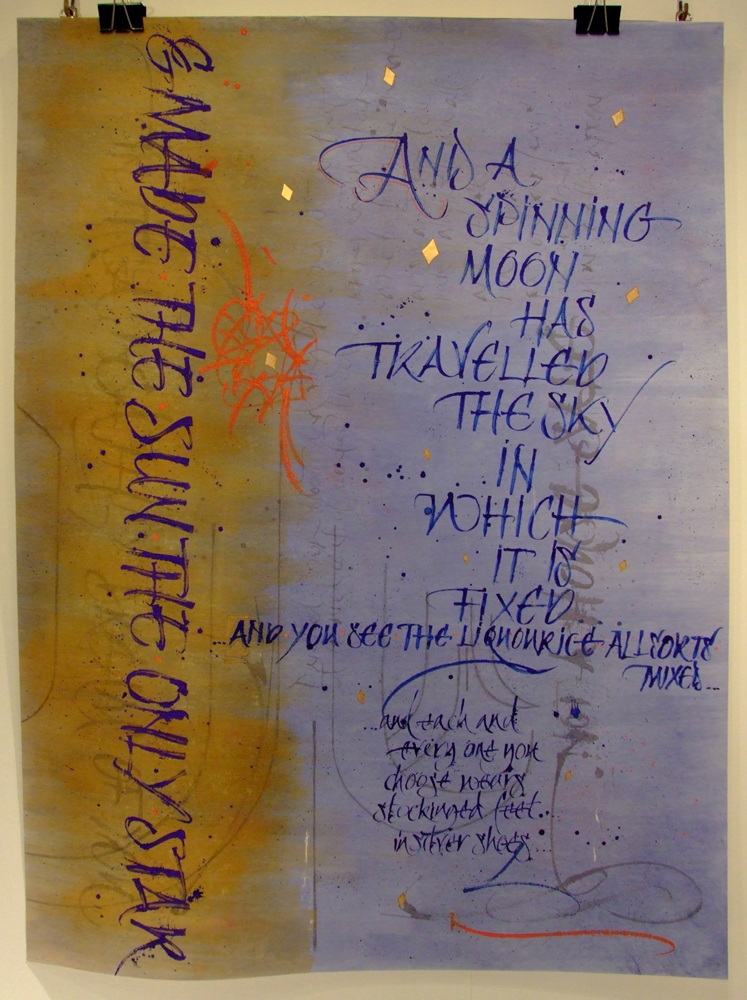 & MADE THE SUN THE ONLY STAR
AND A
SPINNING
MOON
HAS
TRAVELLED
THE SKY
IN
WHICH
IT IS
FIXED
...AND YOU SEE THE LIQUOURICE ALLSORTS
MIXED...
...and each and
every one you
choose wears
stockinged feet...
in silver shoes...